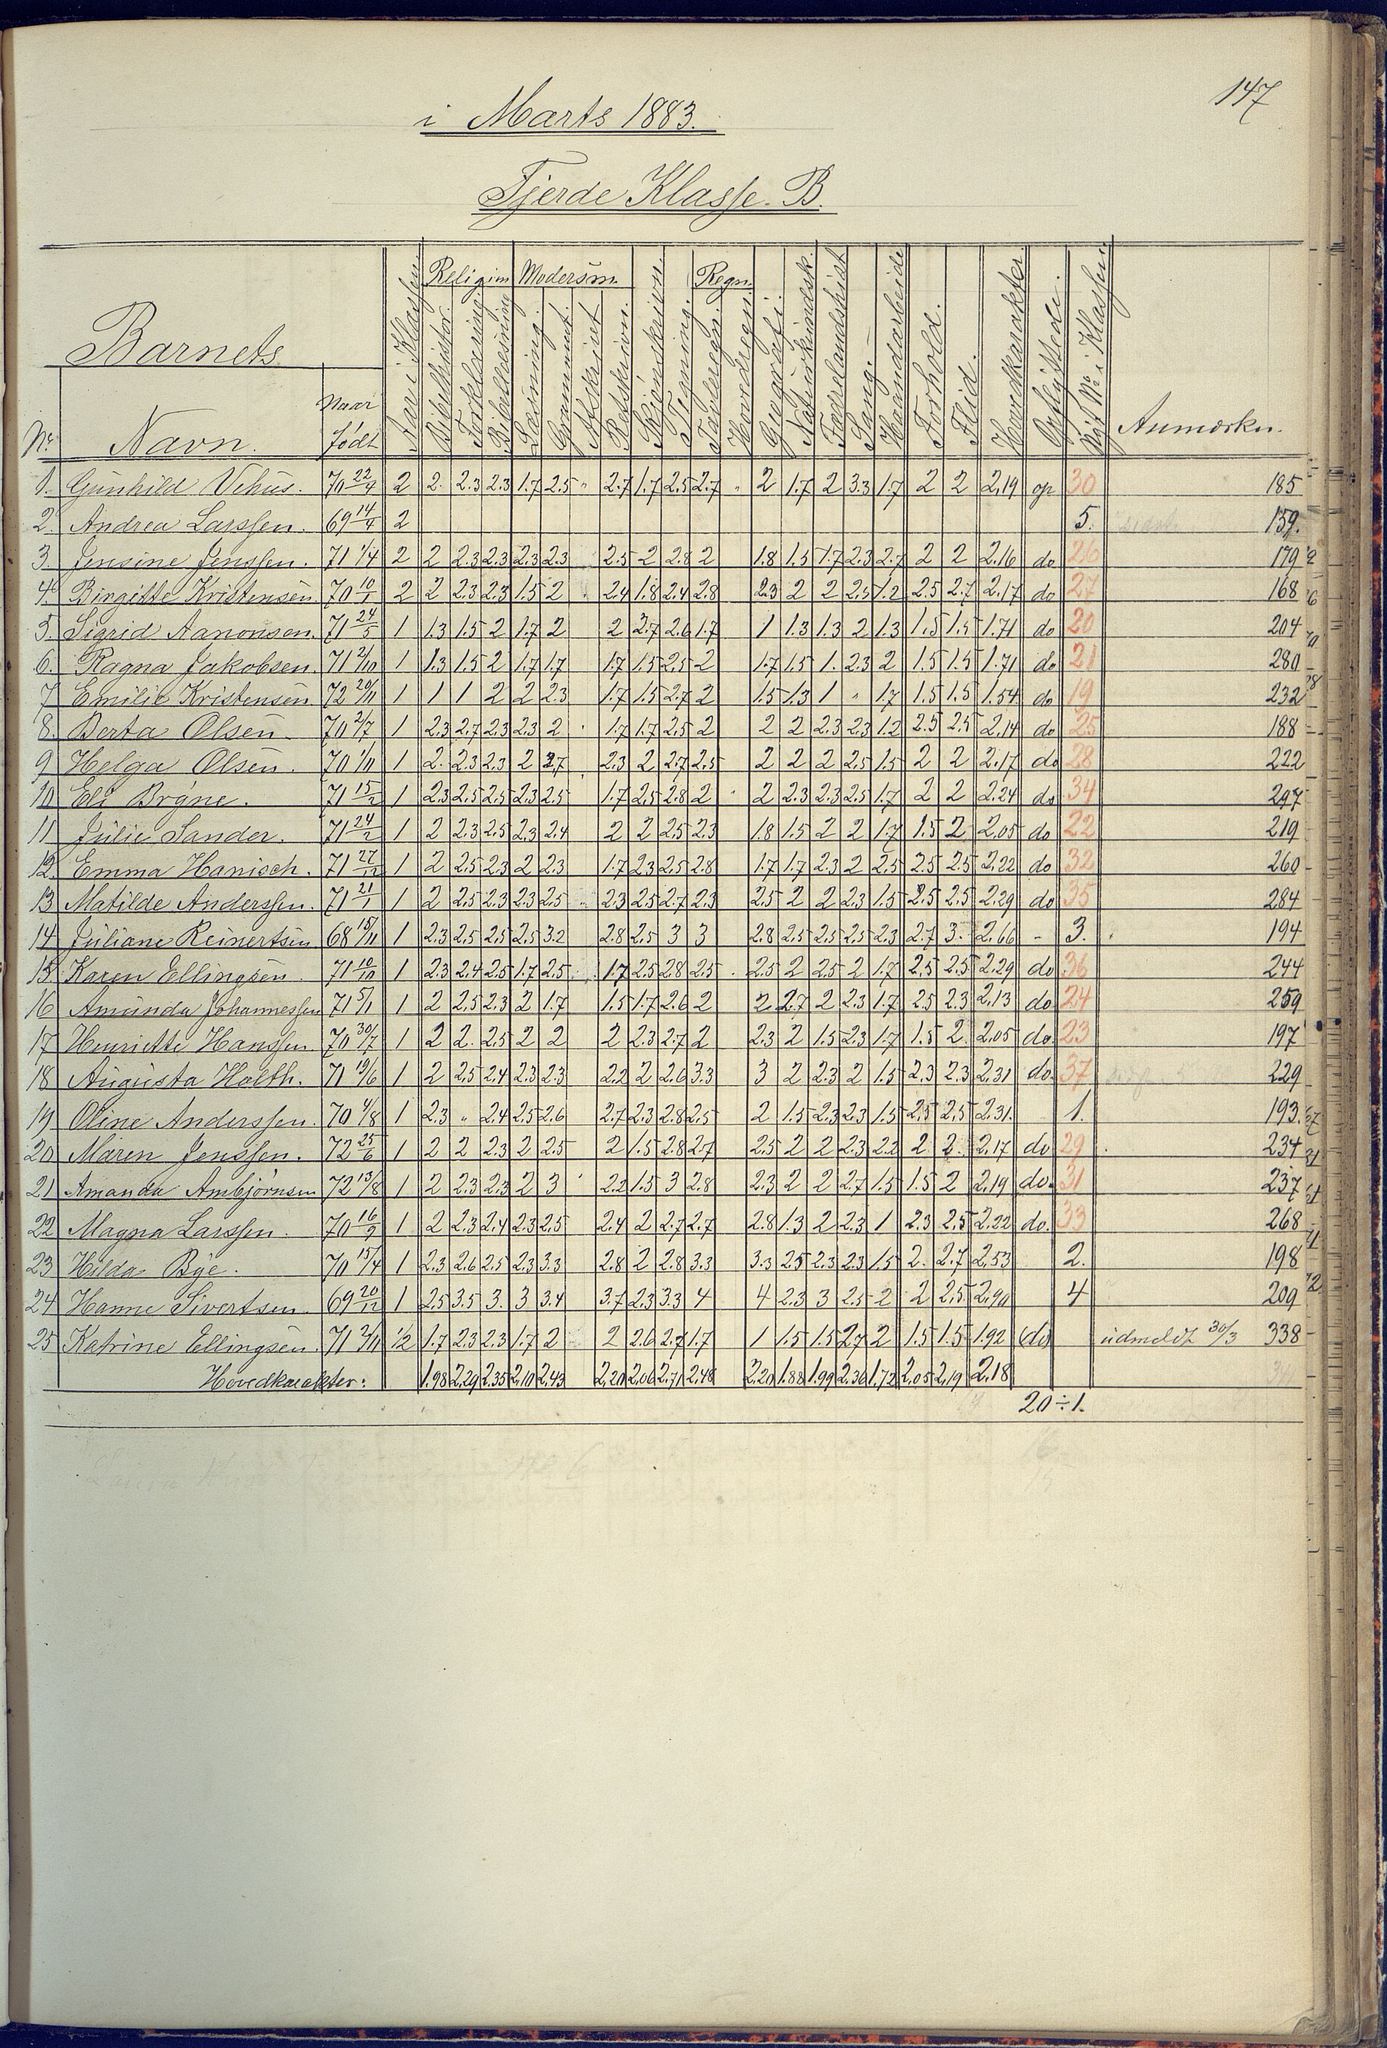 147
i Marts 1883.
Fjerde Klasse. B.
Barnets
Nr. Navn. Naar Født Aar i Klassen. Religion Bibelhistor. Forklaring Bibellæsning Modersm. Læsning. Grammat. Afskrivt Retskrivn. Skjønskrivn. Tegning. Regn. Tavleregn. Hovedregn. Geografi. Naturkundsk. Fædrelandshist Sang. Haandarbeide Forhold. Flid. Hovedkarakter. Opflyttede. Nyt No i Klassen. Anmærkn.
1. Gunhild Vehus. 70 22/4 2 2. 2.3 2.3 1.7 2.5 " 2.7 1.7 2.5 2.7 " 2 1.7 2 3.3 1.7 2 2 2,19 op 30 185
2. Andrea Larssen. 69 14/4 2 5. 159.
3. Jensine Jenssen. 71 1/4 2 2 2.3 2.3 2.3 2.3 2.5 2 2.8 2 1.8 1.5 1.7 2.3 2.7 2 2 2.16 do 26 179
4. Birgitte Kristensen 70 10/1 2 2 2.3 2.3 1.5 2 2.4 1.8 2.4 2.8 2.3 2 2 2.5 1.2 2.5 2.7 2.17 do 27 168
5. Sigrid Aanonsen. 71 24/5 1 1.3 1.5 2 1.7 2 2 2.7 2.6 1.7 1 1.3 1.3 2 1.3 1.5 1.5 1.71 do 20 204
6. Ragna Jakobsen. 71 2/10 1 1.3 1.5 2 1.7 1.7 1.7 1.5 2.5 2 1.7 1.5 1. 2.3 2 1.5 1.5 1.71 do 21 280
7 Emilie Kristensen. 72 20/11 1 1 1 2 2 2.3 1.7 1.5 2.7 2 1.5 1.3 1 " 1.7 1.5 1.5 1.54 do 19 232
8. Berta Olsen. 70 2/7 1 2.3 2.7 2.3 2.3 2 1.7 1.7 2.5 2 2 2 2.3 2.3 1.2 2.5 2.5 2,14 do 25 188
9 Helga Olsen. 70 1/11 1 2. 2.3 2.3 2 2.7 2.3 2 2.7 2.5 2 2 2 2.5 1.5 2 2 2.17 do 28 222
10 Eli Brÿne. 71 15/2 1 2.3 2.5 2.5 2.3 2.5 1.7 2.5 2.8 2 2 2.3 2.3 2.5 1.7 2 2 2.24 do 34 297
11 Julie Sander. 71 24/2 1 2 2.3 2.5 2.3 2.4 2 2 2.5 2.3 1.8 1.5 2 2 1.7 1.5 2 2.05 do 22 219
12. Emma Hanisch. 71 27/12 1 2 2.5 2.3 2 2.3 1.7 2.3 2.5 2.8 1.7 1.7 2.3 2 2.5 2.5 2.5 2.22 do 32 260
13 Matilde Anderssen. 71 21/1 1 2 2.5 2.3 2.3 2.5 2.3 2.5 2.7 2.3 2.5 2 2 2.3 1.5 2.5 2.5 2.29 do 35 284
14 Juliane Reinertsen 68 15/11 1 2.3 2.5 2.5 2.5 3.2 2.8 2.5 3 3 2.8 2.5 2.5 2.5 2.3 2.7 3. 2,66 - 3. 194
15 Karen Ellingsen. 71 10/10 1 2.3 2.4 2.5 1.7 2.5 1.7 2.5 2.8 2.5 2.5 2 2.5 2 1.7 2.5 2.5 2.29 do 36 244
16 Amunda Johannessen 71 5/1 1 2 2.5 2.3 2 1.7 1.5 1.7 2.6 2 2 2.7 2 2.3 1.7 2.5 2.3 2,13 do 24 259
17 Henriette Hanssen. 70 30/7 1 2 2. 2.5 2 2 2 2.3 2.7 2 2.3 2 1.5 2.3 1.7 1.5 2. 2.05 do. 23 197
18 Augusta Holth. 71 19/6 1 2 2.5 2.4 2.3 2.3 2.2 2 2.6 3.3 3 2 2.3 2 1.5 2.3 2.3 2.31 do. 37 229
19 Oline Anderssen. 70 4/8 1 2.3 " 2.4 2.5 2.6 2.7 2.3 2.8 2.5 2 1.5 2.3 2.3 1.5 2.5 2.5 2.31. 1. 193.
20 Maren Jenssen. 72 25/6 1 2 2 2.3 2 2.5 2 1.5 2.8 2.7 2.5 2 2 2.3 2.2 2. 2. 2,17 do 29 234
21 Amanda Ambjørnsen 72 13/8 1 2 2.3 2.3 2 3 2.2 1.5 3 2.8 2.3 2 2 2.7 1.5 1.5 2 2,19 do. 31 237
22 Magna Larssen. 70 16/9 1 2 2.3 2.4 2.3 2.5 2.4 2 2.7 2.7 2.8 1.3 2 2.3 1 2.3 2.5 2.22 do. 33 268
23 Hilda Bye. 70 15/4 1 2.3 2.6 2.5 2.3 3.3 2.8 2 2.8 3.3 3.3 2.5 2.3 2.3 1.5 2. 2.7 2,53 2. 198
24 Hanne Sivertsen. 69 20/12 1 2.5 3.5 3. 3 3.4 3.7 2.3 3.3 4 4 2.3 3 2.5 2 2 2.5 2,90 4 209
25 Katrine Ellingsen. 71 2/11 1/2 1.7 2.3 2.3 1.7 2 2 2.6 2.7 1.7 1 1.5 1.5 2.7 2 1.5 1.5 1.92 (do) udmeldt 30/3 338
Hovedkarakter: 1.98 2.29 2.35 2,10 2,43 2,20 2,06 2,71 2,48 2,20 1.88 1.99 2.36 1.72 2,05 2,19 2,18
20÷1.